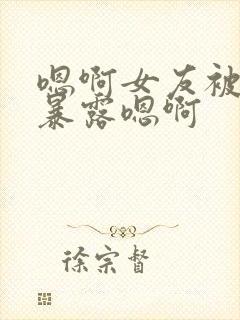 嗯啊女友被
暴露嗯啊
徐宗督